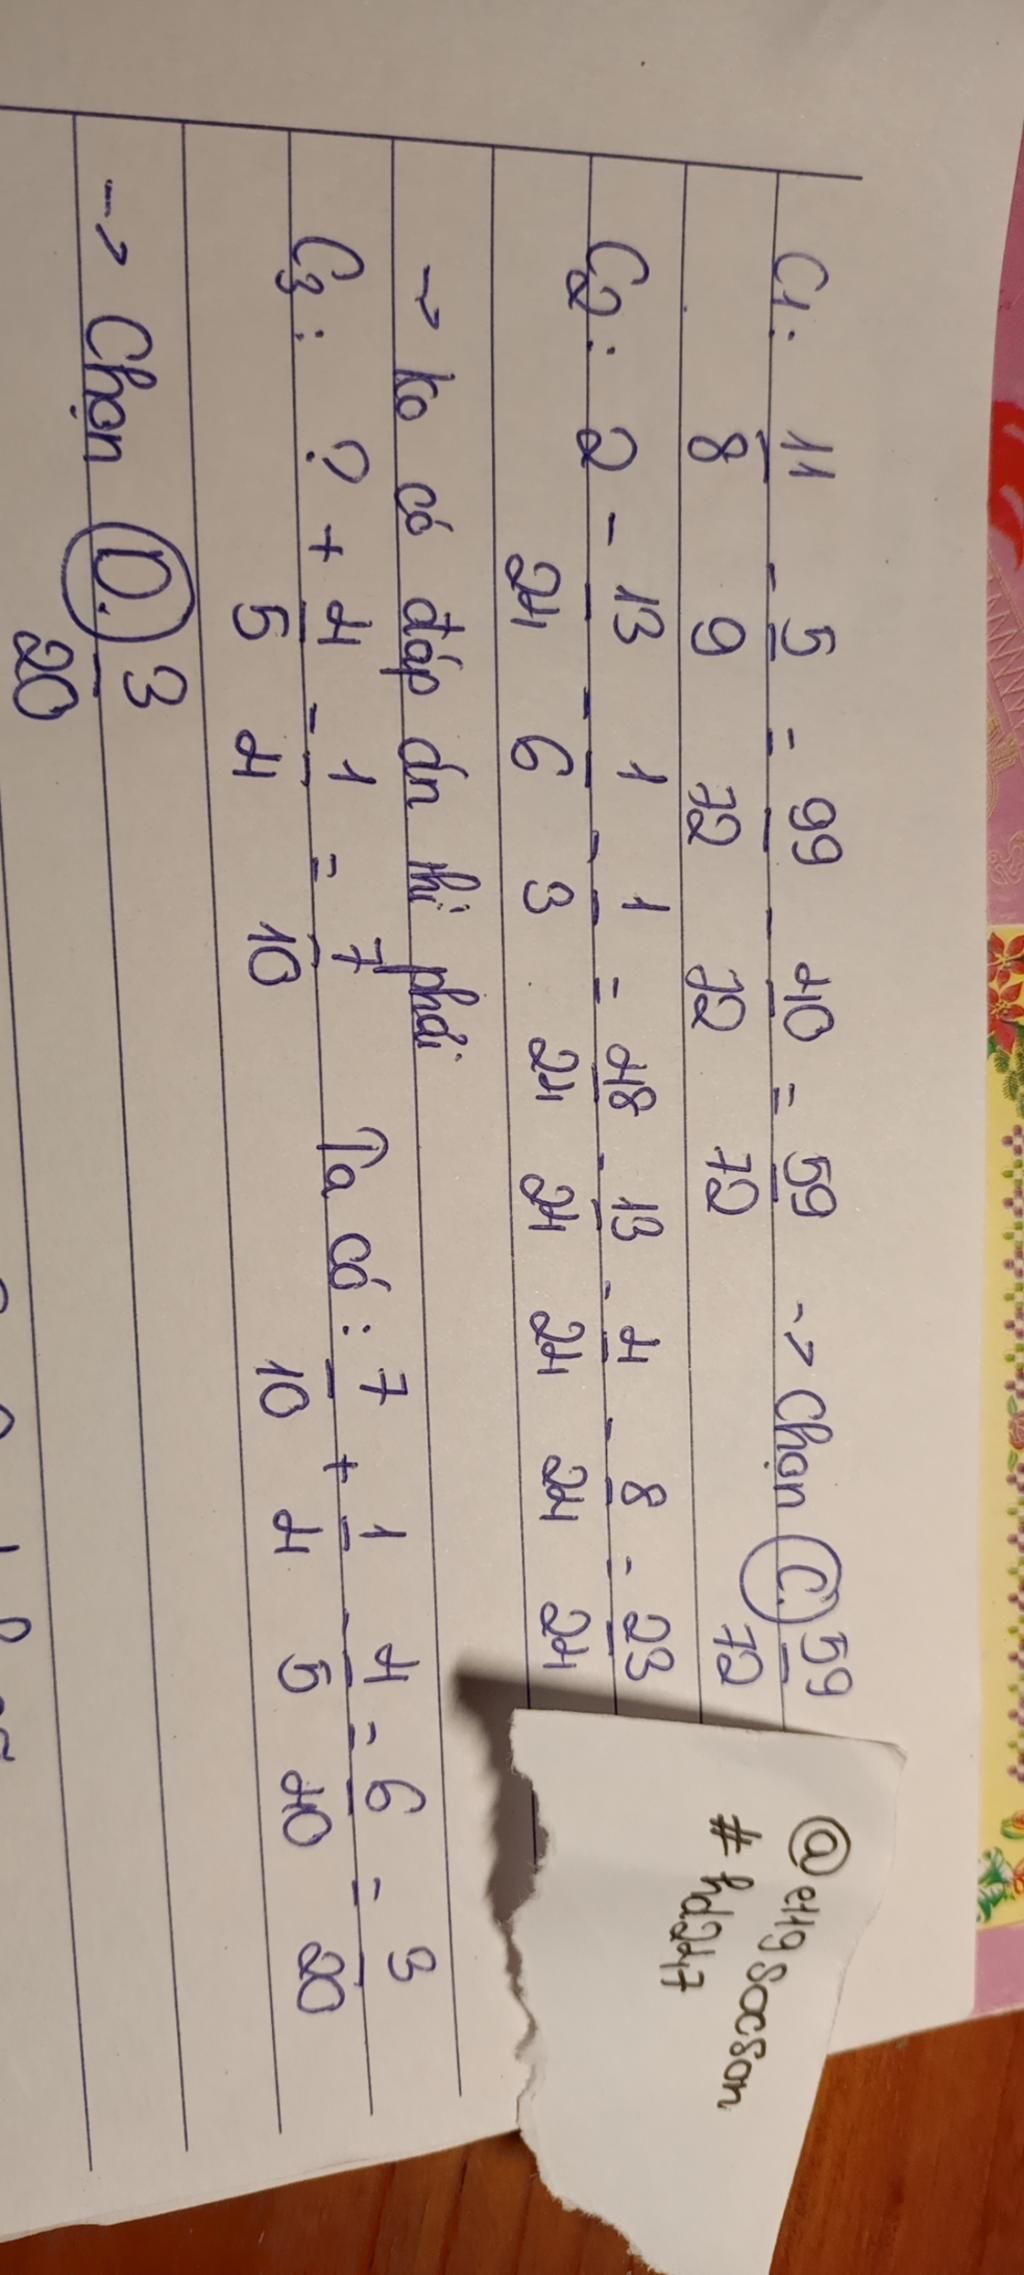 C1: 11/8 - 5/9 = 99/72 - 40/72 = 59/72 -> Chọn C. 59/72
C2: 2 - 13/24 - 1/6 - 1/3 = 48/24 - 13/24 - 4/24 - 8/24 = 23/24
-> ko có đáp án thì phải
C3: ? + 4/5 - 1/4 = 7/10 Ta có: 7/10 + 1/4 - 4/5 = 6/40 = 3/20
-> Chọn D. 3/20
@e419socson
#hd247